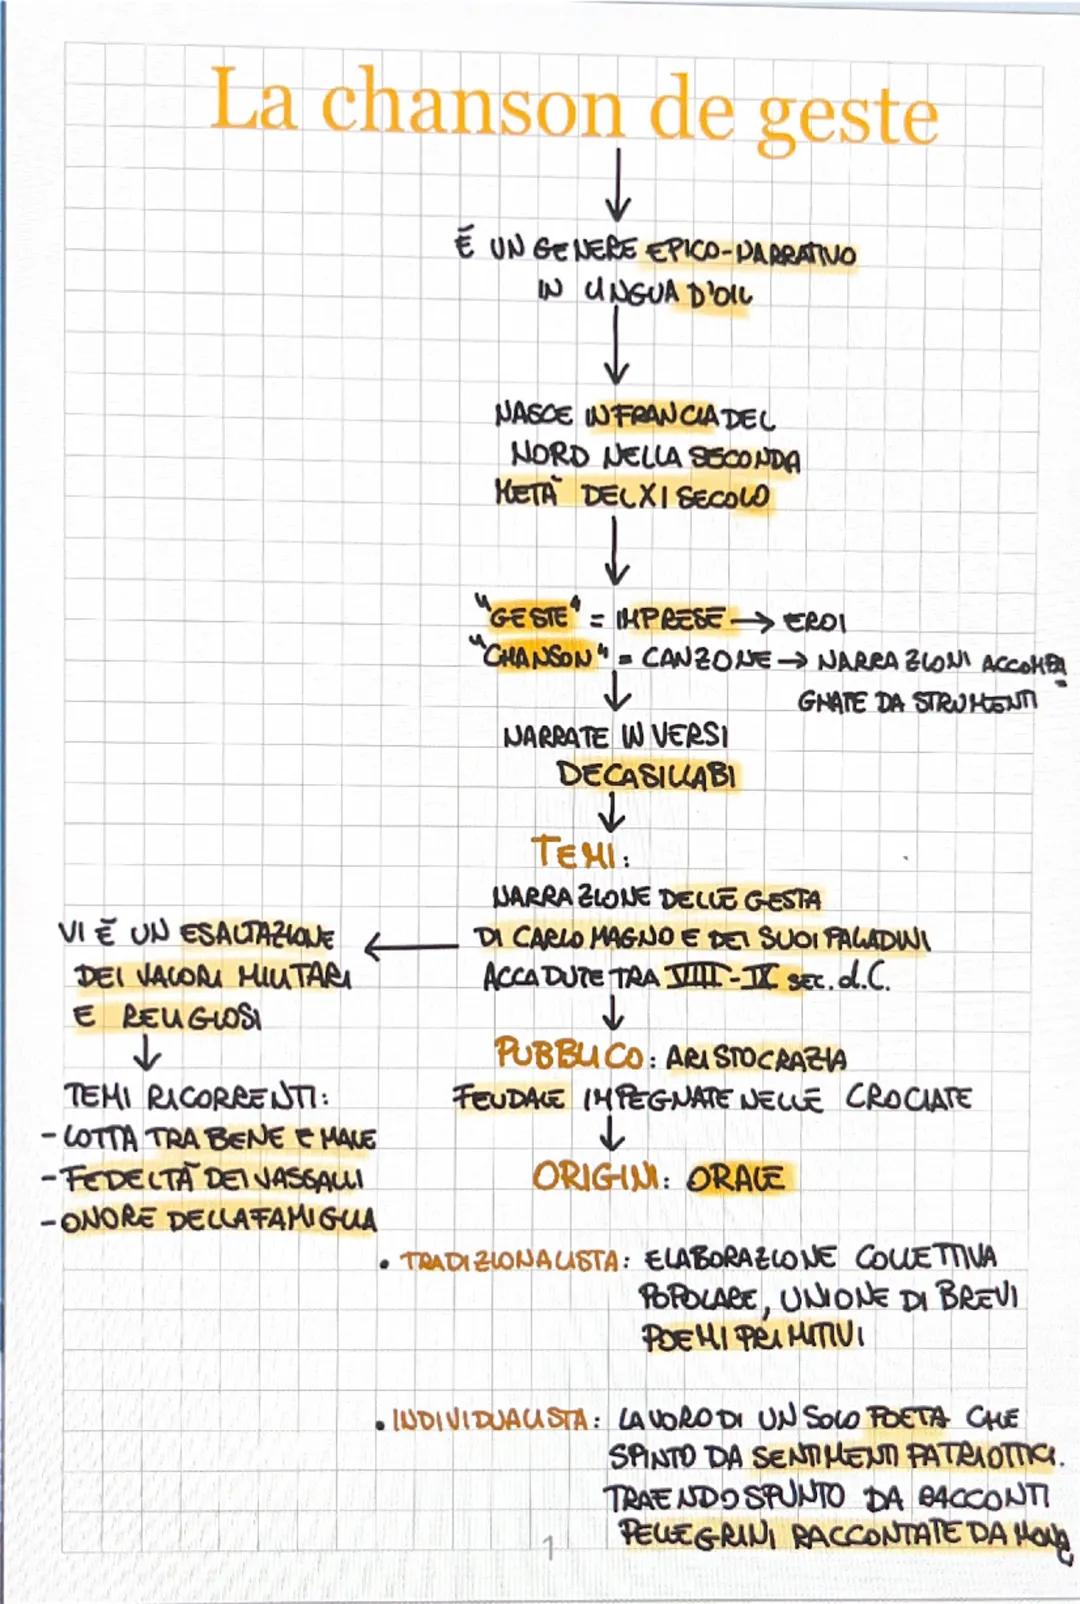 La chanson de geste
È UN GENERE EPICO-NARRATIVO
IN LINGUA D'OIL
NASCE IN FRANCIA DEL
NORD NELLA SECONDA
METÀ DEL XI SECOLO
"GESTE" = IMPRESE → EROI
"CHANSON" = CANZONE → NARRAZIONI ACCOMPA=
GNATE DA STRUMENTI
NARRATE IN VERSI
DECASILLABI
TEMI:
NARRAZIONE DELLE GESTA
DI CARLO MAGNO E DEI SUOI PALADINI
ACCADUTE TRA VIII-IX SEC. d.C.
VI È UN ESALTAZIONE
DEI VALORI MILITARI
E RELIGIOSI
TEMI RICORRENTI:
- LOTTA TRA BENE E MALE
- FEDELTÀ DEI VASSALLI
- ONORE DELLA FAMIGLIA
PUBBLICO: ARISTOCRAZIA
FEUDALE IMPEGNATE NELLE CROCIATE
ORIGINI: ORALE
• TRADIZIONALISTA: ELABORAZIONE COLLETTIVA
POPOLARE, UNIONE DI BREVI
POEMI PRIMITIVI
• INDIVIDUALISTA: LAVORO DI UN SOLO POETA CHE
SPINTO DA SENTIMENTI PATRIOTTICI.
TRAENDO SPUNTO DA RACCONTI
PELLEGRINI RACCONTATE DA
1